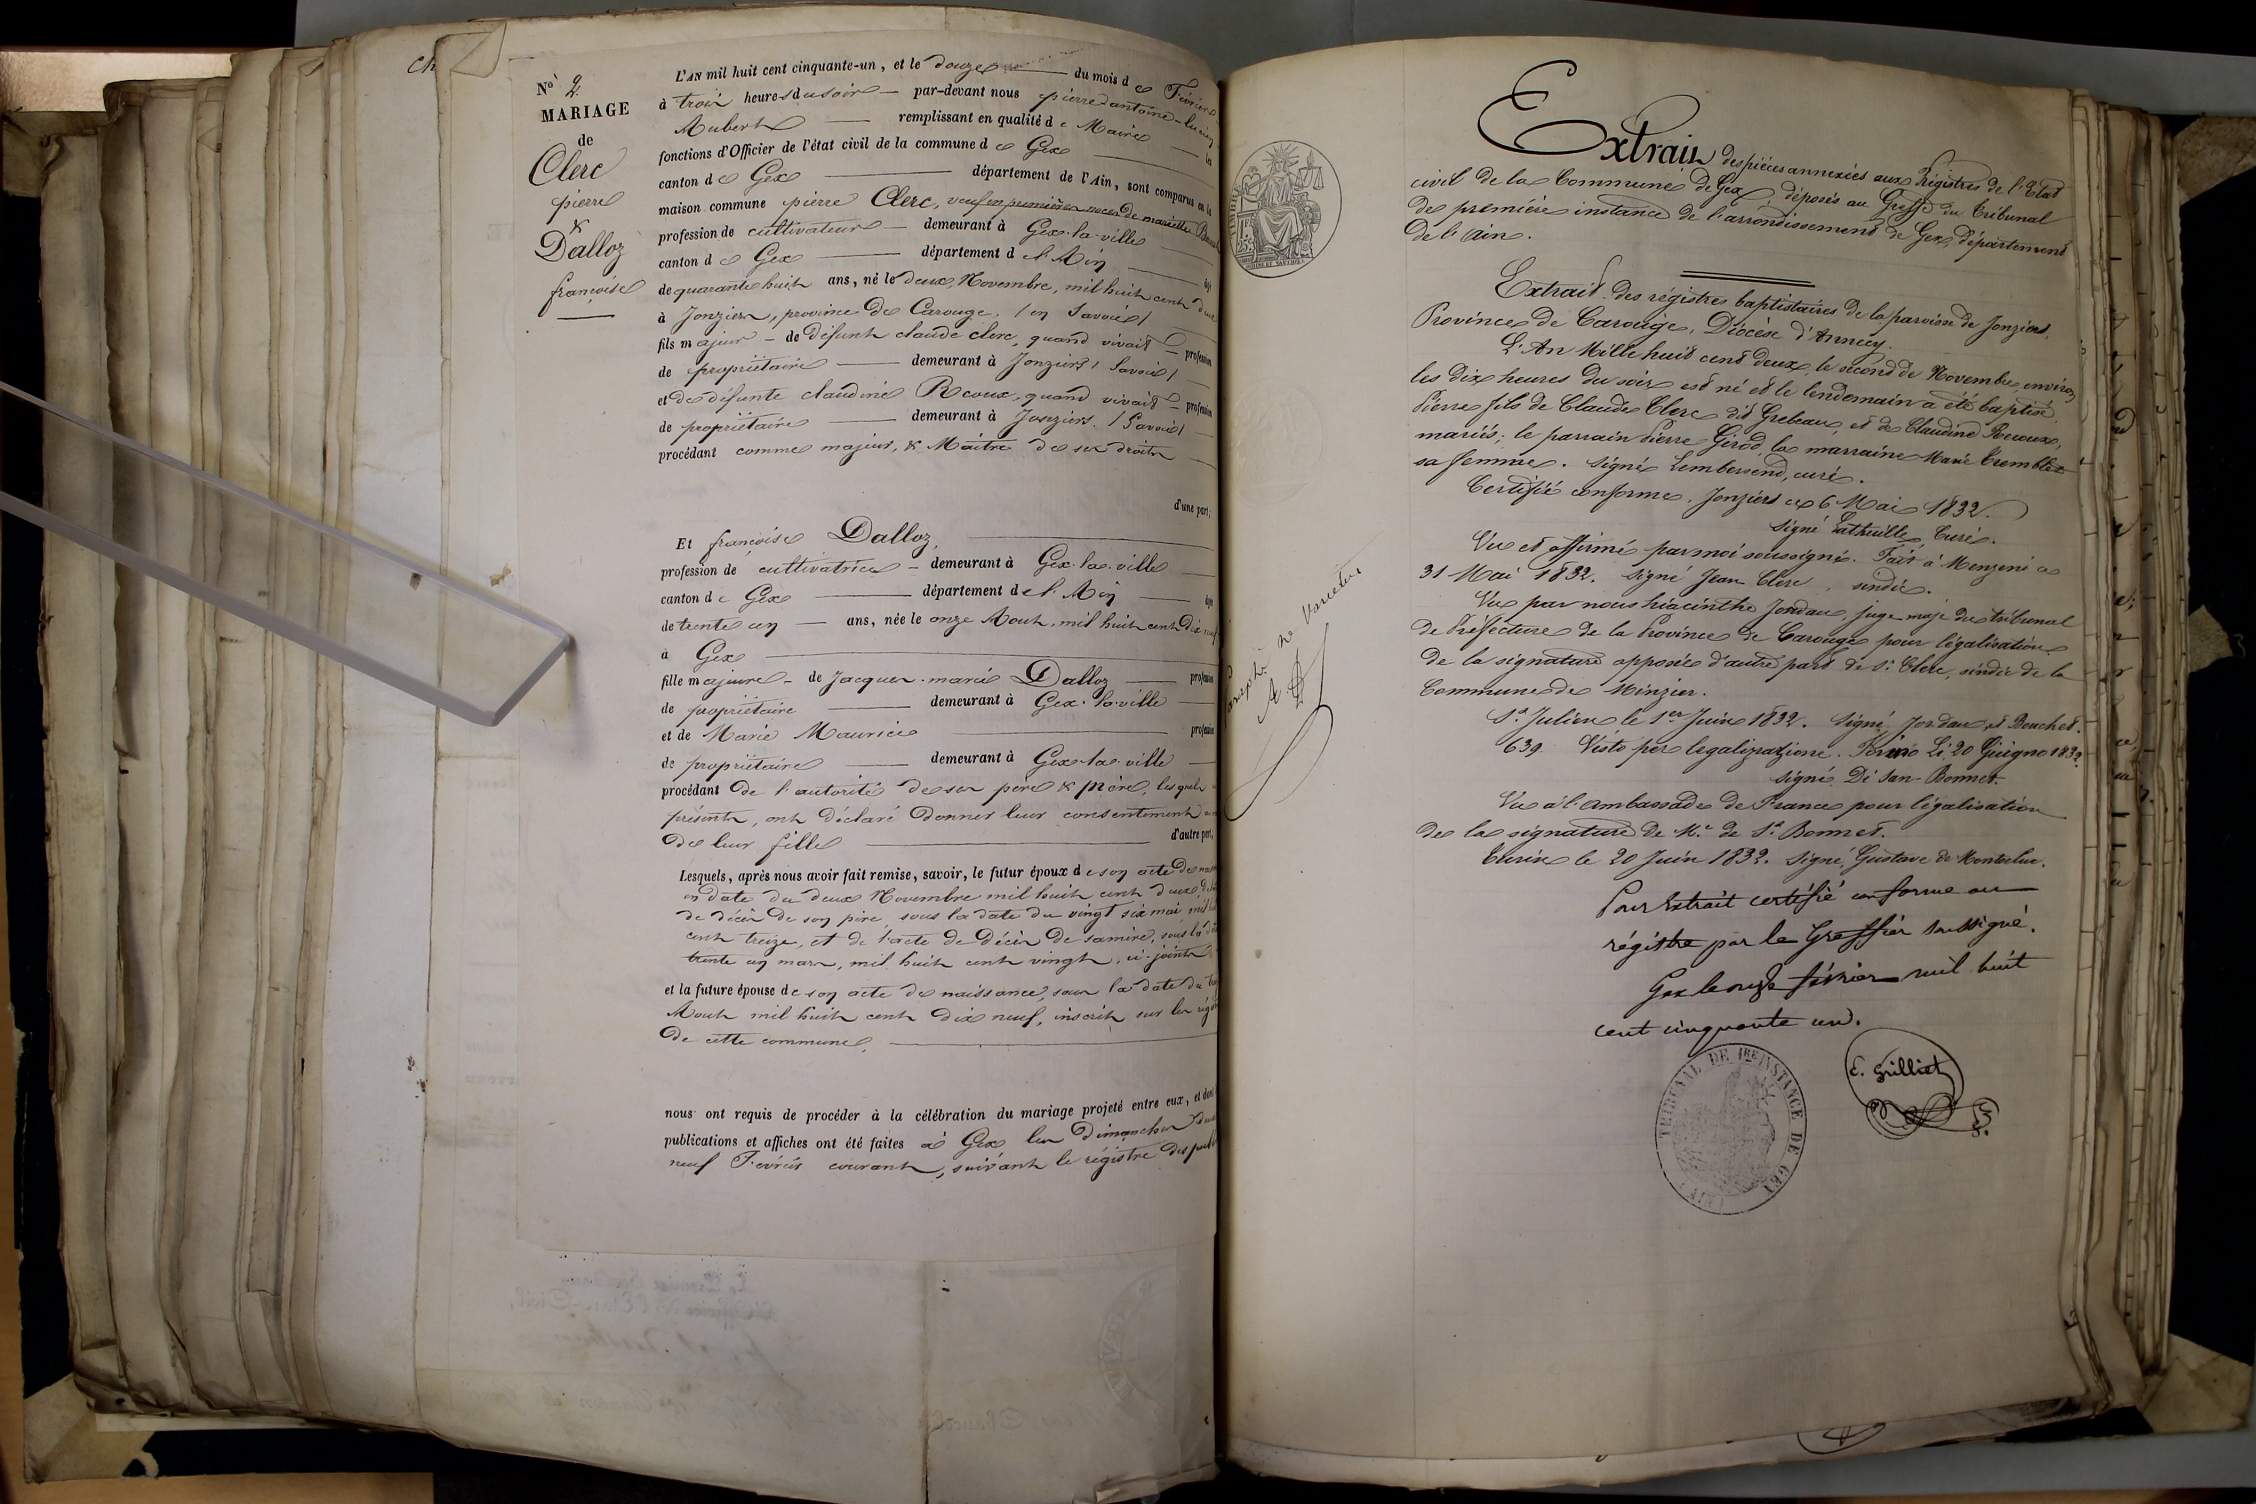 Ch
No 2.
MARIAGE
de
Clerc
pierre
&
Dalloz
françoise
L'AN mil huit cent cinquante-un, et le douze du mois de Février
à trois heures du soir par-devant nous pierre antoine-
Aubert remplissant en qualité de Maire la
fonctions d'Officier de l'état civil de la commune de Gex
canton de Gex département de l'Ain, sont comparus en la
maison commune pierre Clerc, veuf en premières noces de
profession de cultivateur demeurant à Gex-la-ville
canton de Gex département de l'Ain
de quarante huit ans, né le deux Novembre, mil huit cent deux
à Jonziers, province de Carouge, / en Savoie /
fils majeur de défunt claude clerc, quand vivait profession
de propriétaire demeurant à Jonziers / Savoie /
et de défunte claudine Recoux, quand vivait profession
de propriétaire demeurant à Jonziers / Savoie /
procédant comme majeur, & Maître de ses droits
d'une part,
Et françoise Dalloz,
profession de cultivatrice demeurant à Gex-la-ville
canton de Gex département de l'Ain
de trente un ans, née le onze Aout, mil huit cent dix neuf
à Gex
fille majeure de Jacques-marie Dalloz profession
de propriétaire demeurant à Gex-la-ville
et de Marie Maurice profession
de propriétaire demeurant à Gex-la-ville
procédant de l'autorité de ses père & mère, lesquels
présents, ont déclaré donner leur consentement
de leur fille d'autre part,
Lesquels, après nous avoir fait remise, savoir, le futur époux de son acte de
en date du deux Novembre mil huit cent deux
de décès de son père, sous la date du vingt six mai mil
cent treize, et de l'acte de décès de sa mère, sous la
trente un mars, mil huit cent vingt, ci-joints
et la future épouse de son acte de naissance, sous la date du
Aout mil huit cent dix neuf, inscrit sur les
de cette commune.
nous ont requis de procéder à la célébration du mariage projeté entre eux, et dont
publications et affiches ont été faites à Gex les Dimanches deux
neuf Février courant, suivant le régistre des
Extrait des pièces annexées aux Régistres de l'Etat
civil de la Commune de Gex, déposés au Greffe du Tribunal
de première instance de l'arrondissement de Gex, département
de l'Ain.
Extrait des régistres baptistaires de la paroisse de Jonziers,
Province de Carouge, Diocèse d'Annecy.
L'An Mille huit cent deux, le second de Novembre, environ
les dix heures du soir est né et le lendemain a été baptisé
Pierre fils de Claude Clerc dit Grebeau, et de Claudine Recoux,
mariés; le parrain Pierre Girod, la marraine Marie Tremblet
sa femme. Signé Lembersend, curé.
Certifié conforme. Jonziers ce 6 Mai 1832.
Signé Lathuille, Curé.
Vu et affirmé par moi soussigné. Fait à Menzeni ce
31 Mai 1832. Signé Jean Clerc, sindic.
Vu par nous hiacinthe Jordan, juge maje du tribunal
de Préfecture de la Province de Carouge pour légalisation
de la signature apposée d'autre part de Sr. Clerc, sindic de la
Commune de Minzier.
St. Julien le 1er Juin 1832. Signé Jordan, et Bouchet.
639 Visto per legalizazione. Torino Li 20 Giugno 1832.
Signé Di San-Bonnet.
Vu à l'ambassade de France pour légalisation
de la signature de Mr. de St. Bonnet.
Turin le 20 Juin 1832. Signé Gustave de
Pour Extrait certifié conforme au
régistre par le Greffier soussigné.
Gex le onze février mil huit
cent cinquante un.
E. Grilliet
TRIBUNAL DE 1RE INSTANCE DE GEX
ne varietur
A. D